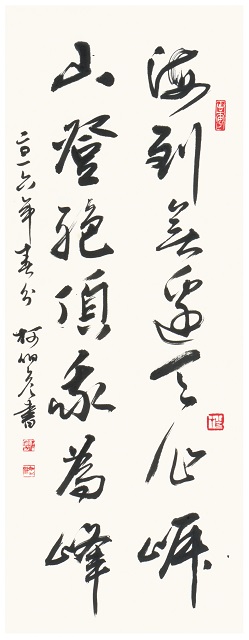 海到無邊天作岸
山登絶頂我為峰
二〇一六年春分 柯 書